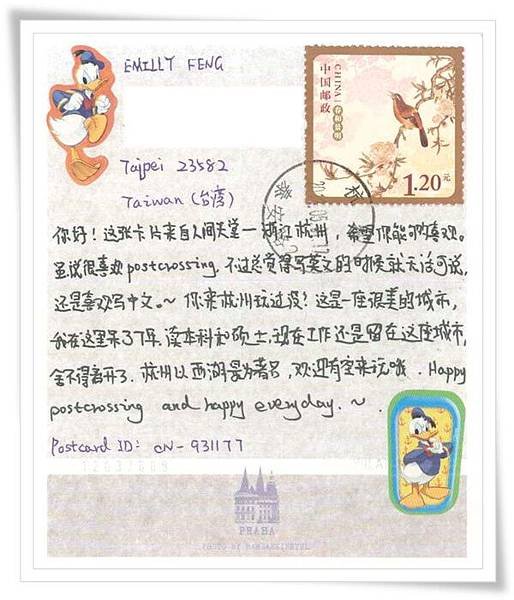 EMILLY FENG
中国邮政
CHINA
春和景明
1.20元
Taipei 23582
Taiwan (台湾)
你好！这张卡片来自人间天堂—浙江杭州，希望你能够喜欢。
虽说很喜欢postcrossing. 不过总觉得写英文的时候就无话可说，
还是喜欢写中文。~ 你来杭州玩过没？这是一座很美的城市，
我在这里呆了7年，读本科和硕士，现在工作还是留在这座城市，
舍不得离开了. 杭州以西湖最为著名，欢迎有空来玩哦. Happy
postcrossing and happy everyday. ~ .
Postcard ID: CN-931177
PRAHA